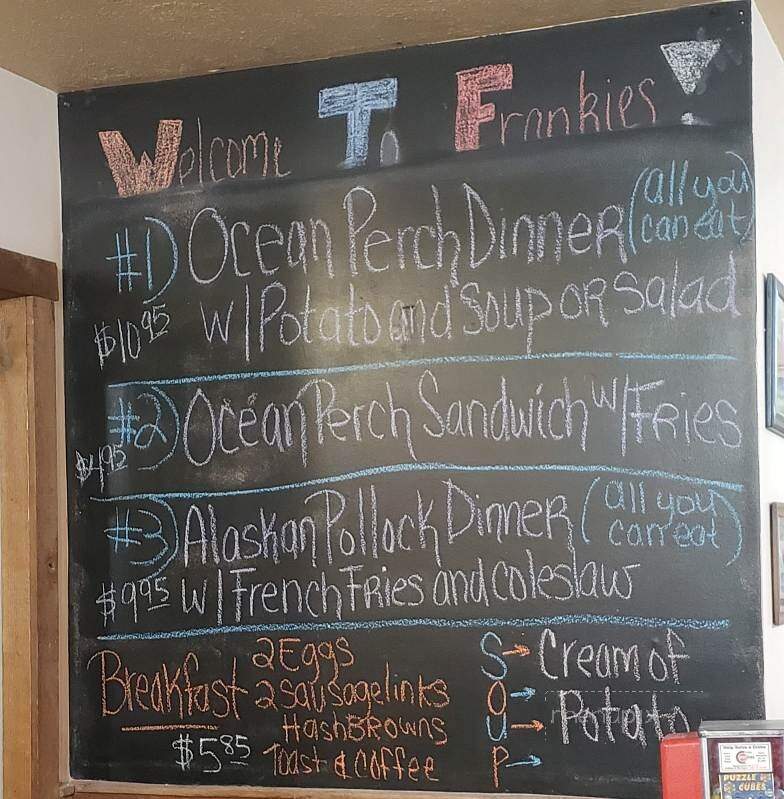 Welcome To Frankies!
#1) Ocean Perch Dinner (all you can eat)
$10.95 w/ Potato and Soup or Salad
#2) Ocean Perch Sandwich w/ Fries
$4.95
#3) Alaskan Pollock Dinner (all you can eat)
$9.95 w/ French Fries and coleslaw
Breakfast 2 Eggs
2 sausage links
HashBrowns
$5.85 Toast & Coffee
SOUP → Cream of
Potato
PUZZLE
CUBES